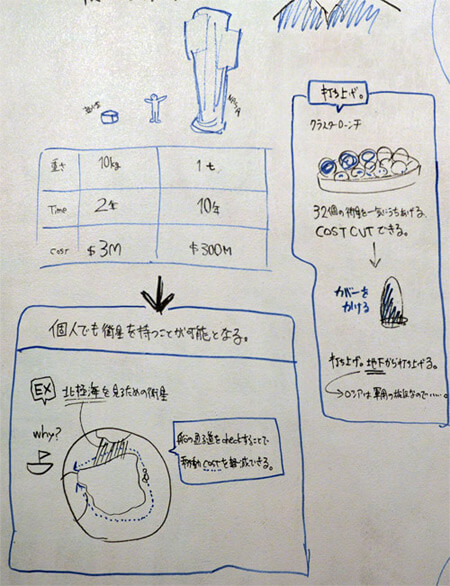 重さ 10kg 1t
Time 2年 10年
COST $3M $300M
個人でも衛星を持つことが可能となる。
EX 北極海を見るための衛星
why?
船の通る道をcheckすることで
移動COSTを軽減できる。
打ち上げ。
クラスターローンチ
32個の衛星を一気にうちあげる。
COST CUTできる。
カバーを
かける
打ち上げ。地下から打ち上げる。
→ロシアは軍用の技術なので……。